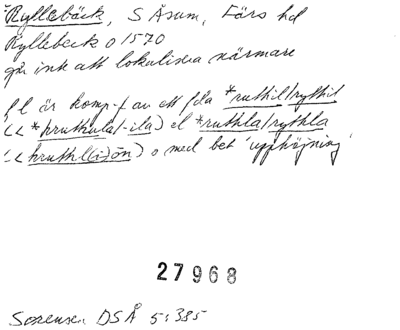 Ryllebäck, S Åsum, Färs hd
Ryllebeck o 1570
går inte att lokalisera närmare
fl är komp-f av ett fda *ruthil/rythil
(< *hruthula/-ila) el *ruthla/rythla
(< hruthl(i)ōn) o med bet 'upphöjning'
27968
Sørensen DSÅ 5:385